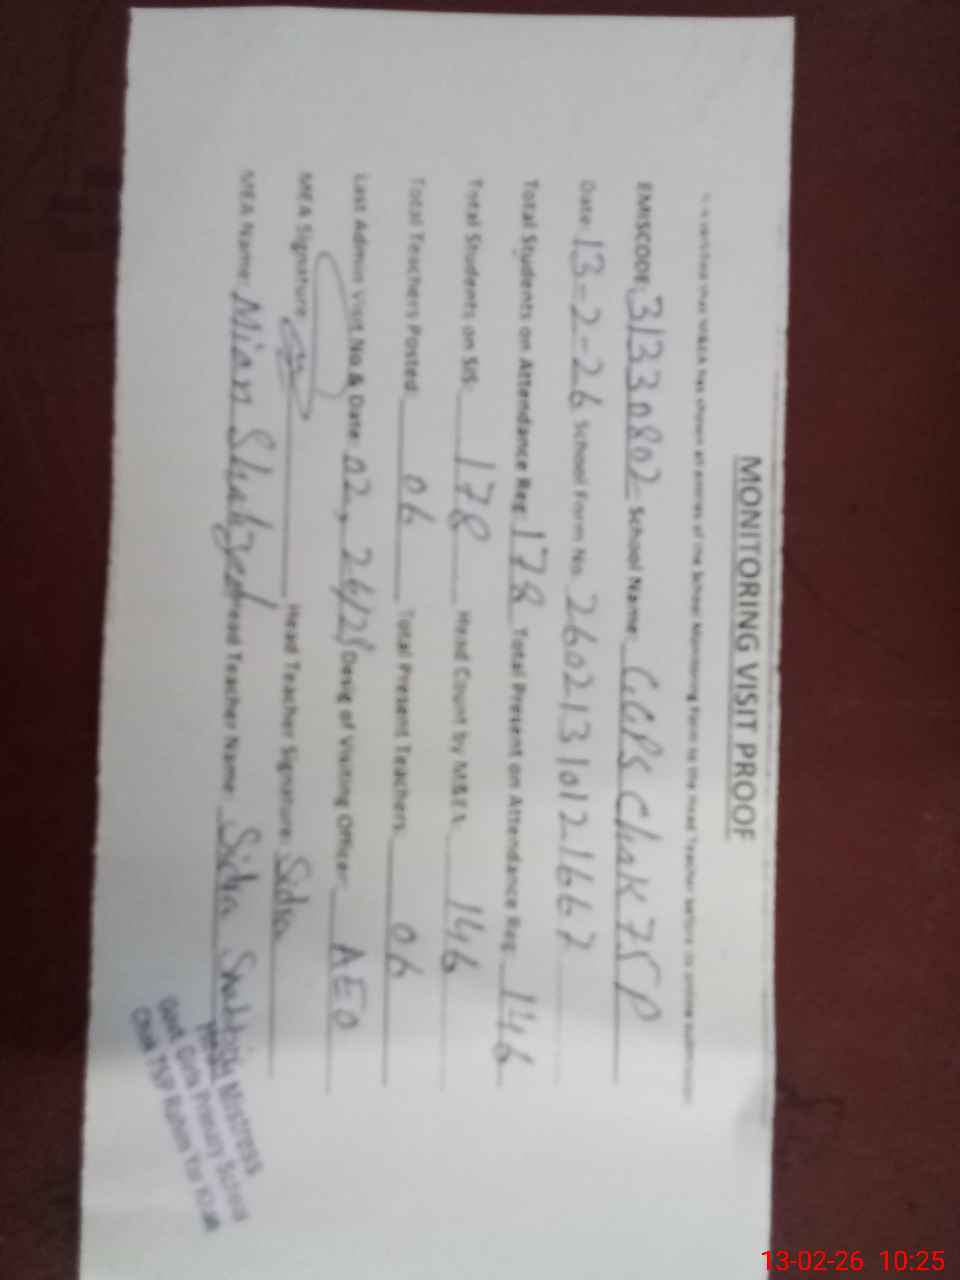 MONITORING VISIT PROOF
It is certified that M&EA has shown all entries of the School Monitoring Form to the Head Teacher before its online submission
EMISCODE: 31330802 School Name: GGPS Chak 75P
Date: 13-2-26 School Form No. 26021310121667
Total Students on Attendance Reg: 178 Total Present on Attendance Reg: 146
Total Students on SIS: 178 Head Count by M&EA: 146
Total Teachers Posted: 06 Total Present Teachers: 06
Last Admin Visit No & Date: 02, 26/2 Desig of Visiting Officer: AEO
MEA Signature: Head Teacher Signature: Sidra
MEA Name: Mian Shahzad Head Teacher Name: Sidra
Head Mistress
Govt. Girls Primary School
Chak 75P Rahim Yar Khan
13-02-26 10:25